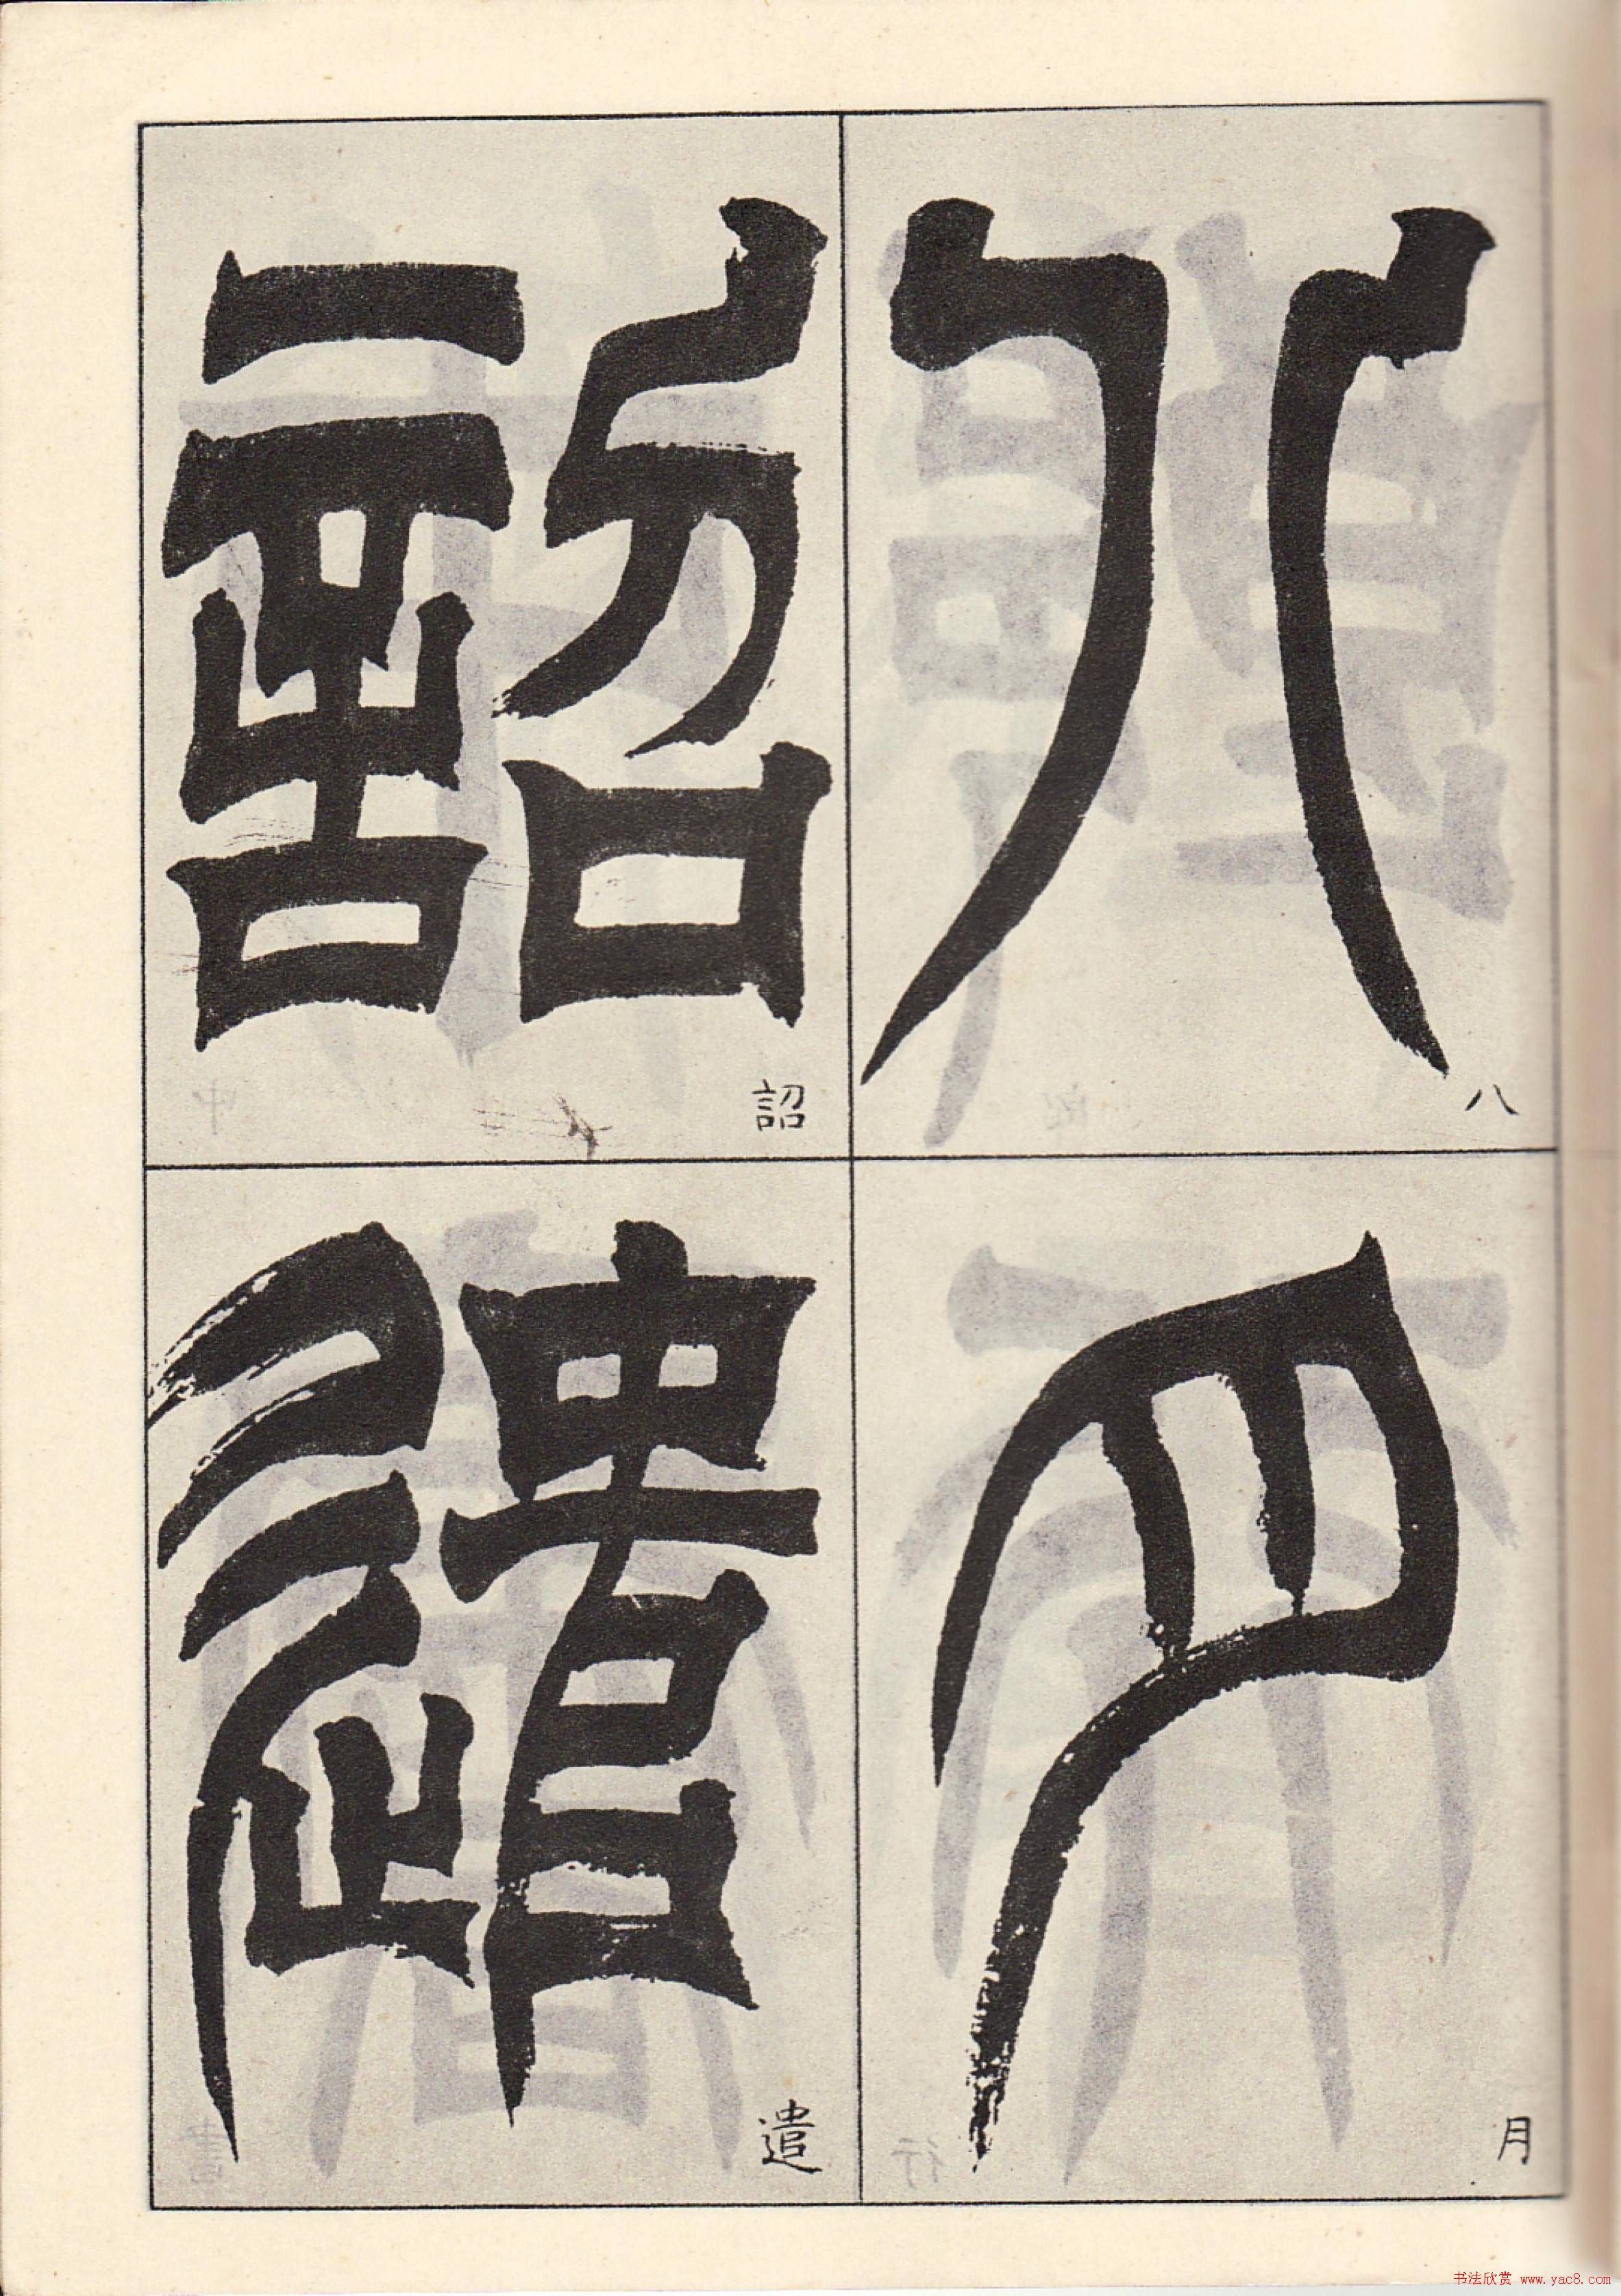 八
月
詔
遣
八
月
詔
遣
书法欣赏 www.yac8.com